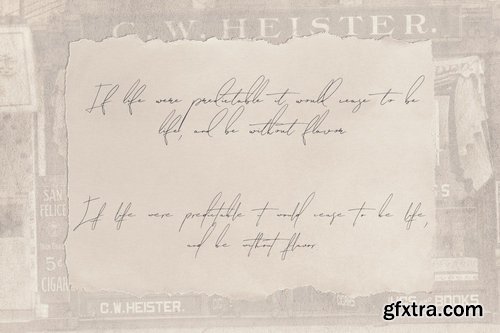 C.W. HEISTER.
If life were predictable it would cease to be
life, and be without flavor.
If life were predictable it would cease to be life,
and be without flavor.
SAN
FELICE
5¢
CIGAR
C.W.HEISTER.
BOOKS
gfxtra.com